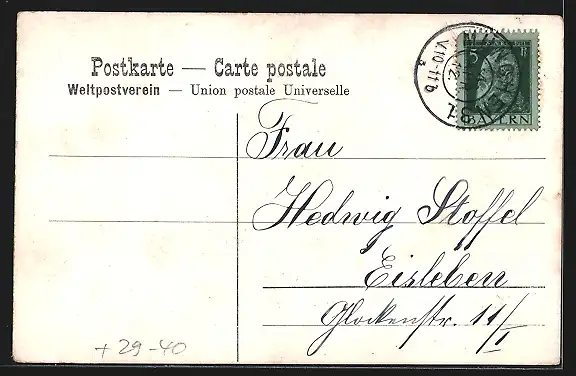 Postkarte — Carte postale
Weltpostverein — Union postale Universelle
5 Pf
BAYERN
V.10-11
Frau
Hedwig Stoffel
Eisleben
Glockenstr. 11/I
+ 29-40